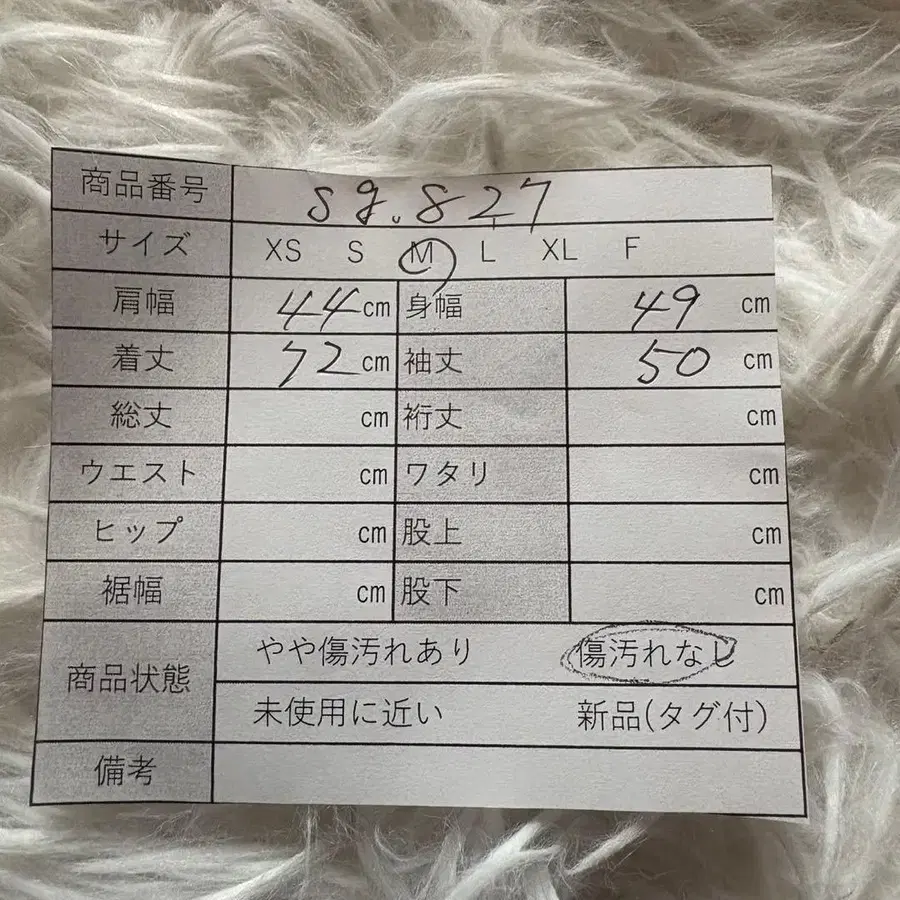 商品番号 sg.827
サイズ XS S M L XL F
肩幅 44cm 身幅 49 cm
着丈 72cm 袖丈 50 cm
総丈 cm 裄丈 cm
ウエスト cm ワタリ cm
ヒップ cm 股上 cm
裾幅 cm 股下 cm
商品状態 やや傷汚れあり 傷汚れなし
未使用に近い 新品(タグ付)
備考